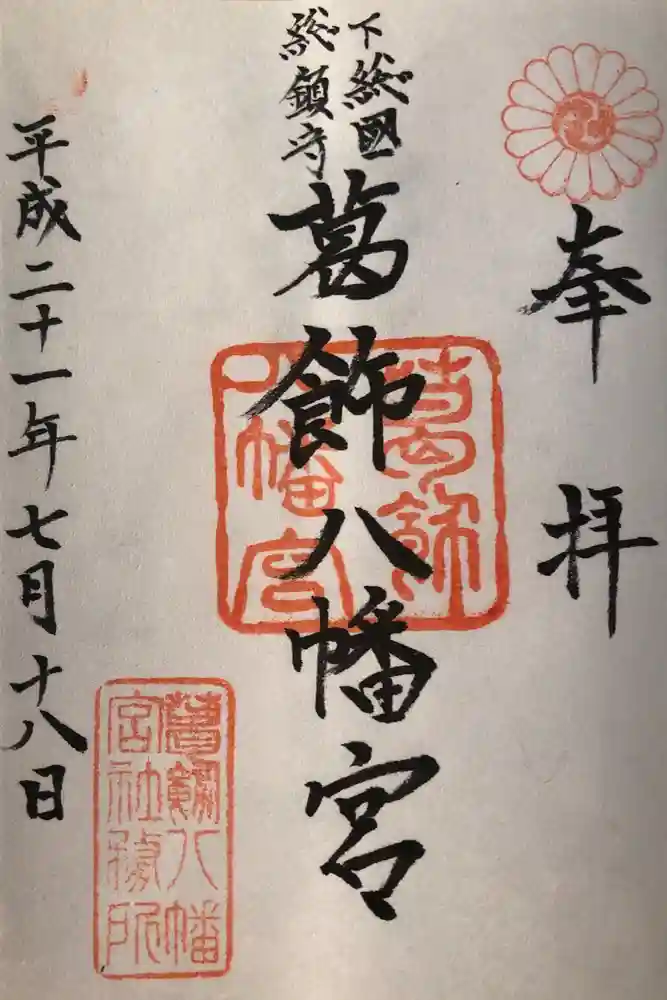 奉拝
下総國
総鎮守
葛飾八幡宮
平成二十一年七月十八日
葛飾
八幡宮
葛飾八幡
宮社務所